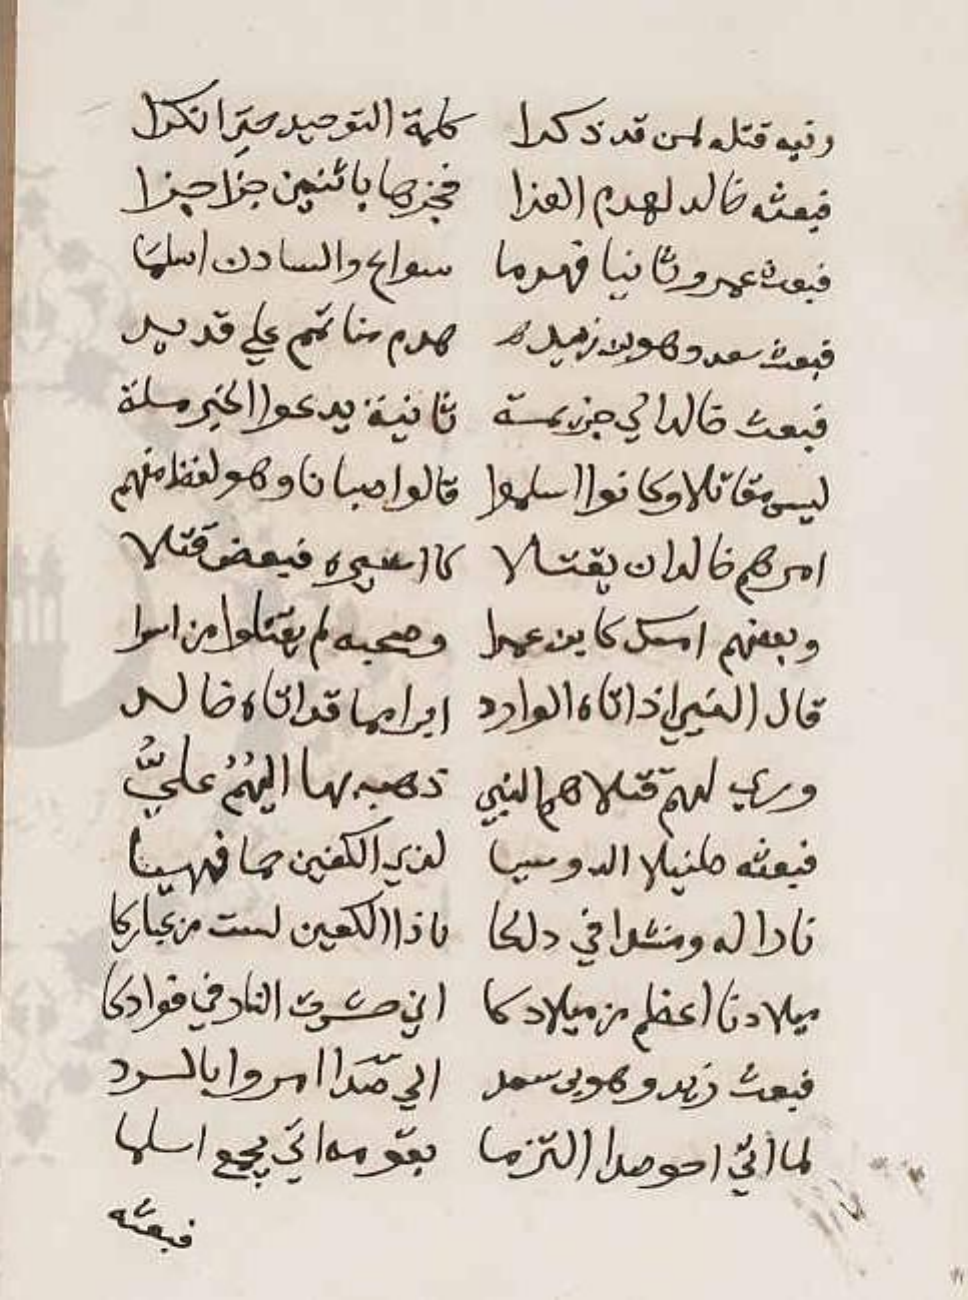 وفيه قتله لمن قد ذكرا كلمة التوحيد حتى انكرا
فبعثه خالد لهدم العزا فجزها باثنين جزا جزا
فبعث عمرو ثانيا فهدما سواع والسادن اسلما
فبعث سعد وهو بن زيد هدم مناتهم علي قديد
فبعث خالدا لي جزيمة ثانية يدعوا لخير ملة
ليس مقاتلا وكانوا اسلموا قالوا صبانا وهو لفظ منهم
امرهم خالد ان يقتلا كل اسيره فبعض قتلا
وبعضهم امسك كابن عمرا وصحبه لم يقتلوا من اسرا
قال النبي اذ اتاه الوارد ابرا مما قد اتاه خالد
وودي لهم قتلاهم النبي ذهب بها اليهم علي
فبعثه طفيلا الدوسيا لذي الكفين
نادا له ومنشدا في ذلكا يا ذا الكفين لست من عباركا
ميلادنا اعظم من ميلادكا اني حشوت النار في فوادكا
فبعث زيد وهو بن سعد الي صدا امروا بالسرد
لما اتي اخو صدا التزما بقومه اتي بجمع اسلما
فبعثه